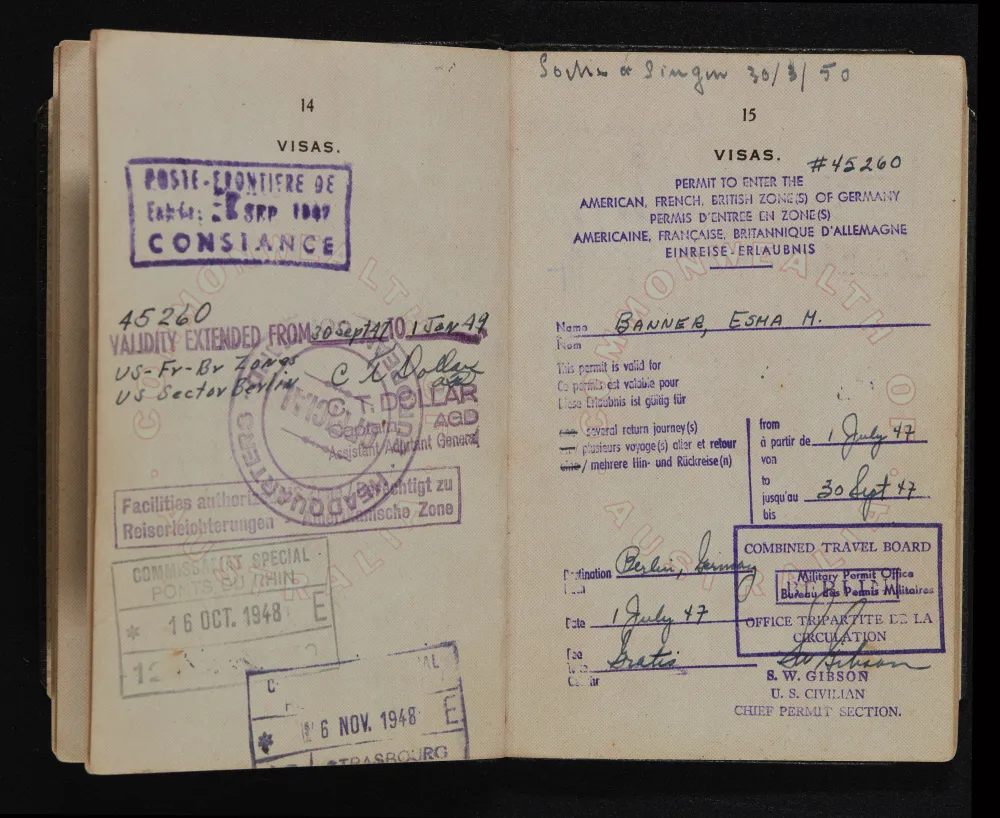 14
VISAS.
POSTE-FRONTIERE DE
SEP 1947
CONSTANCE
45260
VALIDITY EXTENDED FROM 30 Sept 47 TO 1 Jan 49
US-Fr-Br Zones
US Sector Berlin
C T Dollar
C. T. DOLLAR
Captain AGD
Assistant Adjutant General
HEADQUARTERS
Facilities
Reiserleichterungen Zone
COMMISSARIAT SPECIAL
PONTS DU RHIN
* 16 OCT. 1948 E
12
C
* 6 NOV. 1948 E
STRASBOURG
COMMONWEALTH OF AUSTRALIA
30/3/50
15
VISAS.
#45260
PERMIT TO ENTER THE
AMERICAN, FRENCH, BRITISH ZONE(S) OF GERMANY
PERMIS D'ENTREE EN ZONE(S)
AMERICAINE, FRANÇAISE, BRITANNIQUE D'ALLEMAGNE
EINREISE-ERLAUBNIS
Name BANNER, ESMA M.
Nom
This permit is valid for
Ce permis est valable pour
Diese Erlaubnis ist gültig für
one several return journey(s)
un / plusieurs voyage(s) aller et retour
eine / mehrere Hin- und Rückreise(n)
from
à partir de 1 July 47
von
to
jusqu'au 30 Sept 47
bis
Destination Berlin, Germany
Date 1 July 47
Fee Gratis
COMBINED TRAVEL BOARD
BERLIN
Military Permit Office
Bureau des Permis Militaires
OFFICE TRIPARTITE DE LA
CIRCULATION
SW Gibson
S. W. GIBSON
U. S. CIVILIAN
CHIEF PERMIT SECTION.
COMMONWEALTH OF AUSTRALIA